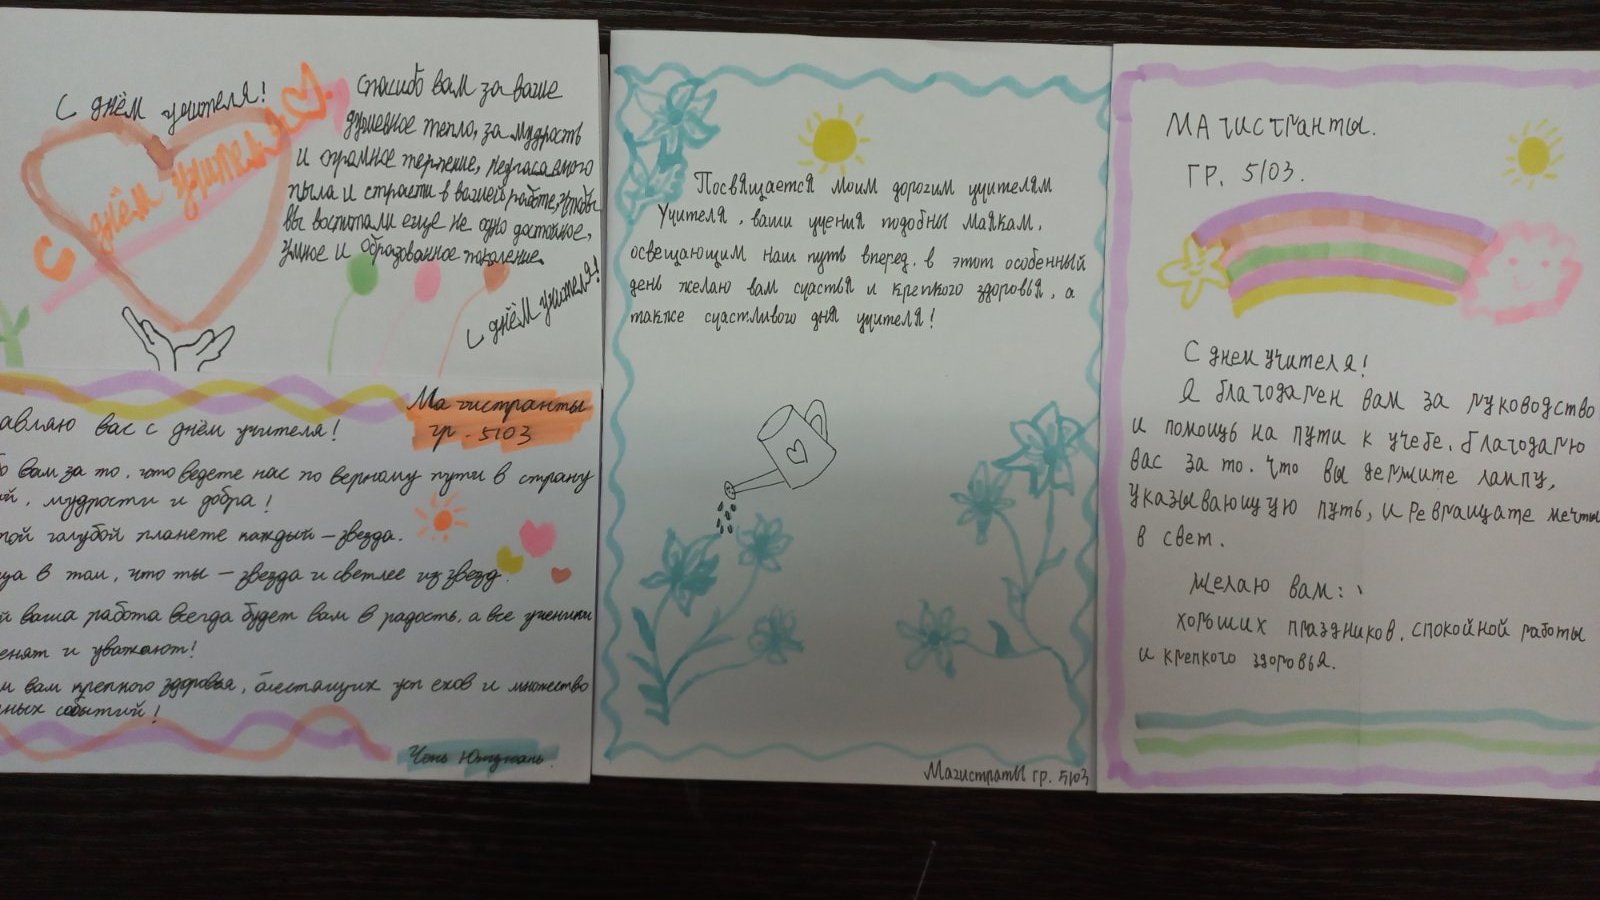 С днём учителя!
с днём учителя
Спасибо вам за ваше
душевное тепло, за мудрость
и огромное терпение, негасаемого
пыла и страсти в вашей работе, чтобы
вы воспитали еще не одно достойное,
умное и образованное поколение.
С днём учителя!
Магистранты
гр. 5103
авляю вас с днём учителя!
о вам за то, что ведете нас по верному пути в страну
ий, мудрости и добра!
той галубой планете каждый – звезда.
ца в том, что ты – звезда и светлее из звезд.
й ваша работа всегда будет вам в радость, а все ученики
енят и уважают!
м вам крепкого здоровья, блестящих успехов и множество
ных событий!
Чень
Посвящается моим дорогим учителям
Учителя, ваши учения подобны маякам,
освещающим наш путь вперед. в этот особенный
день желаю вам счастья и крепкого здоровья, а
также счастливого дня учителя!
Магистраты гр. 5103
Магистранты.
гр. 5103.
С днем учителя!
Я благодарен вам за руководство
и помощь на пути к учебе. благодарю
вас за то. что вы держите лампу,
указывающую путь, и превращате мечты
в свет.
Желаю вам:
хороших праздников. спокойной работы
и крепкого здоровья.